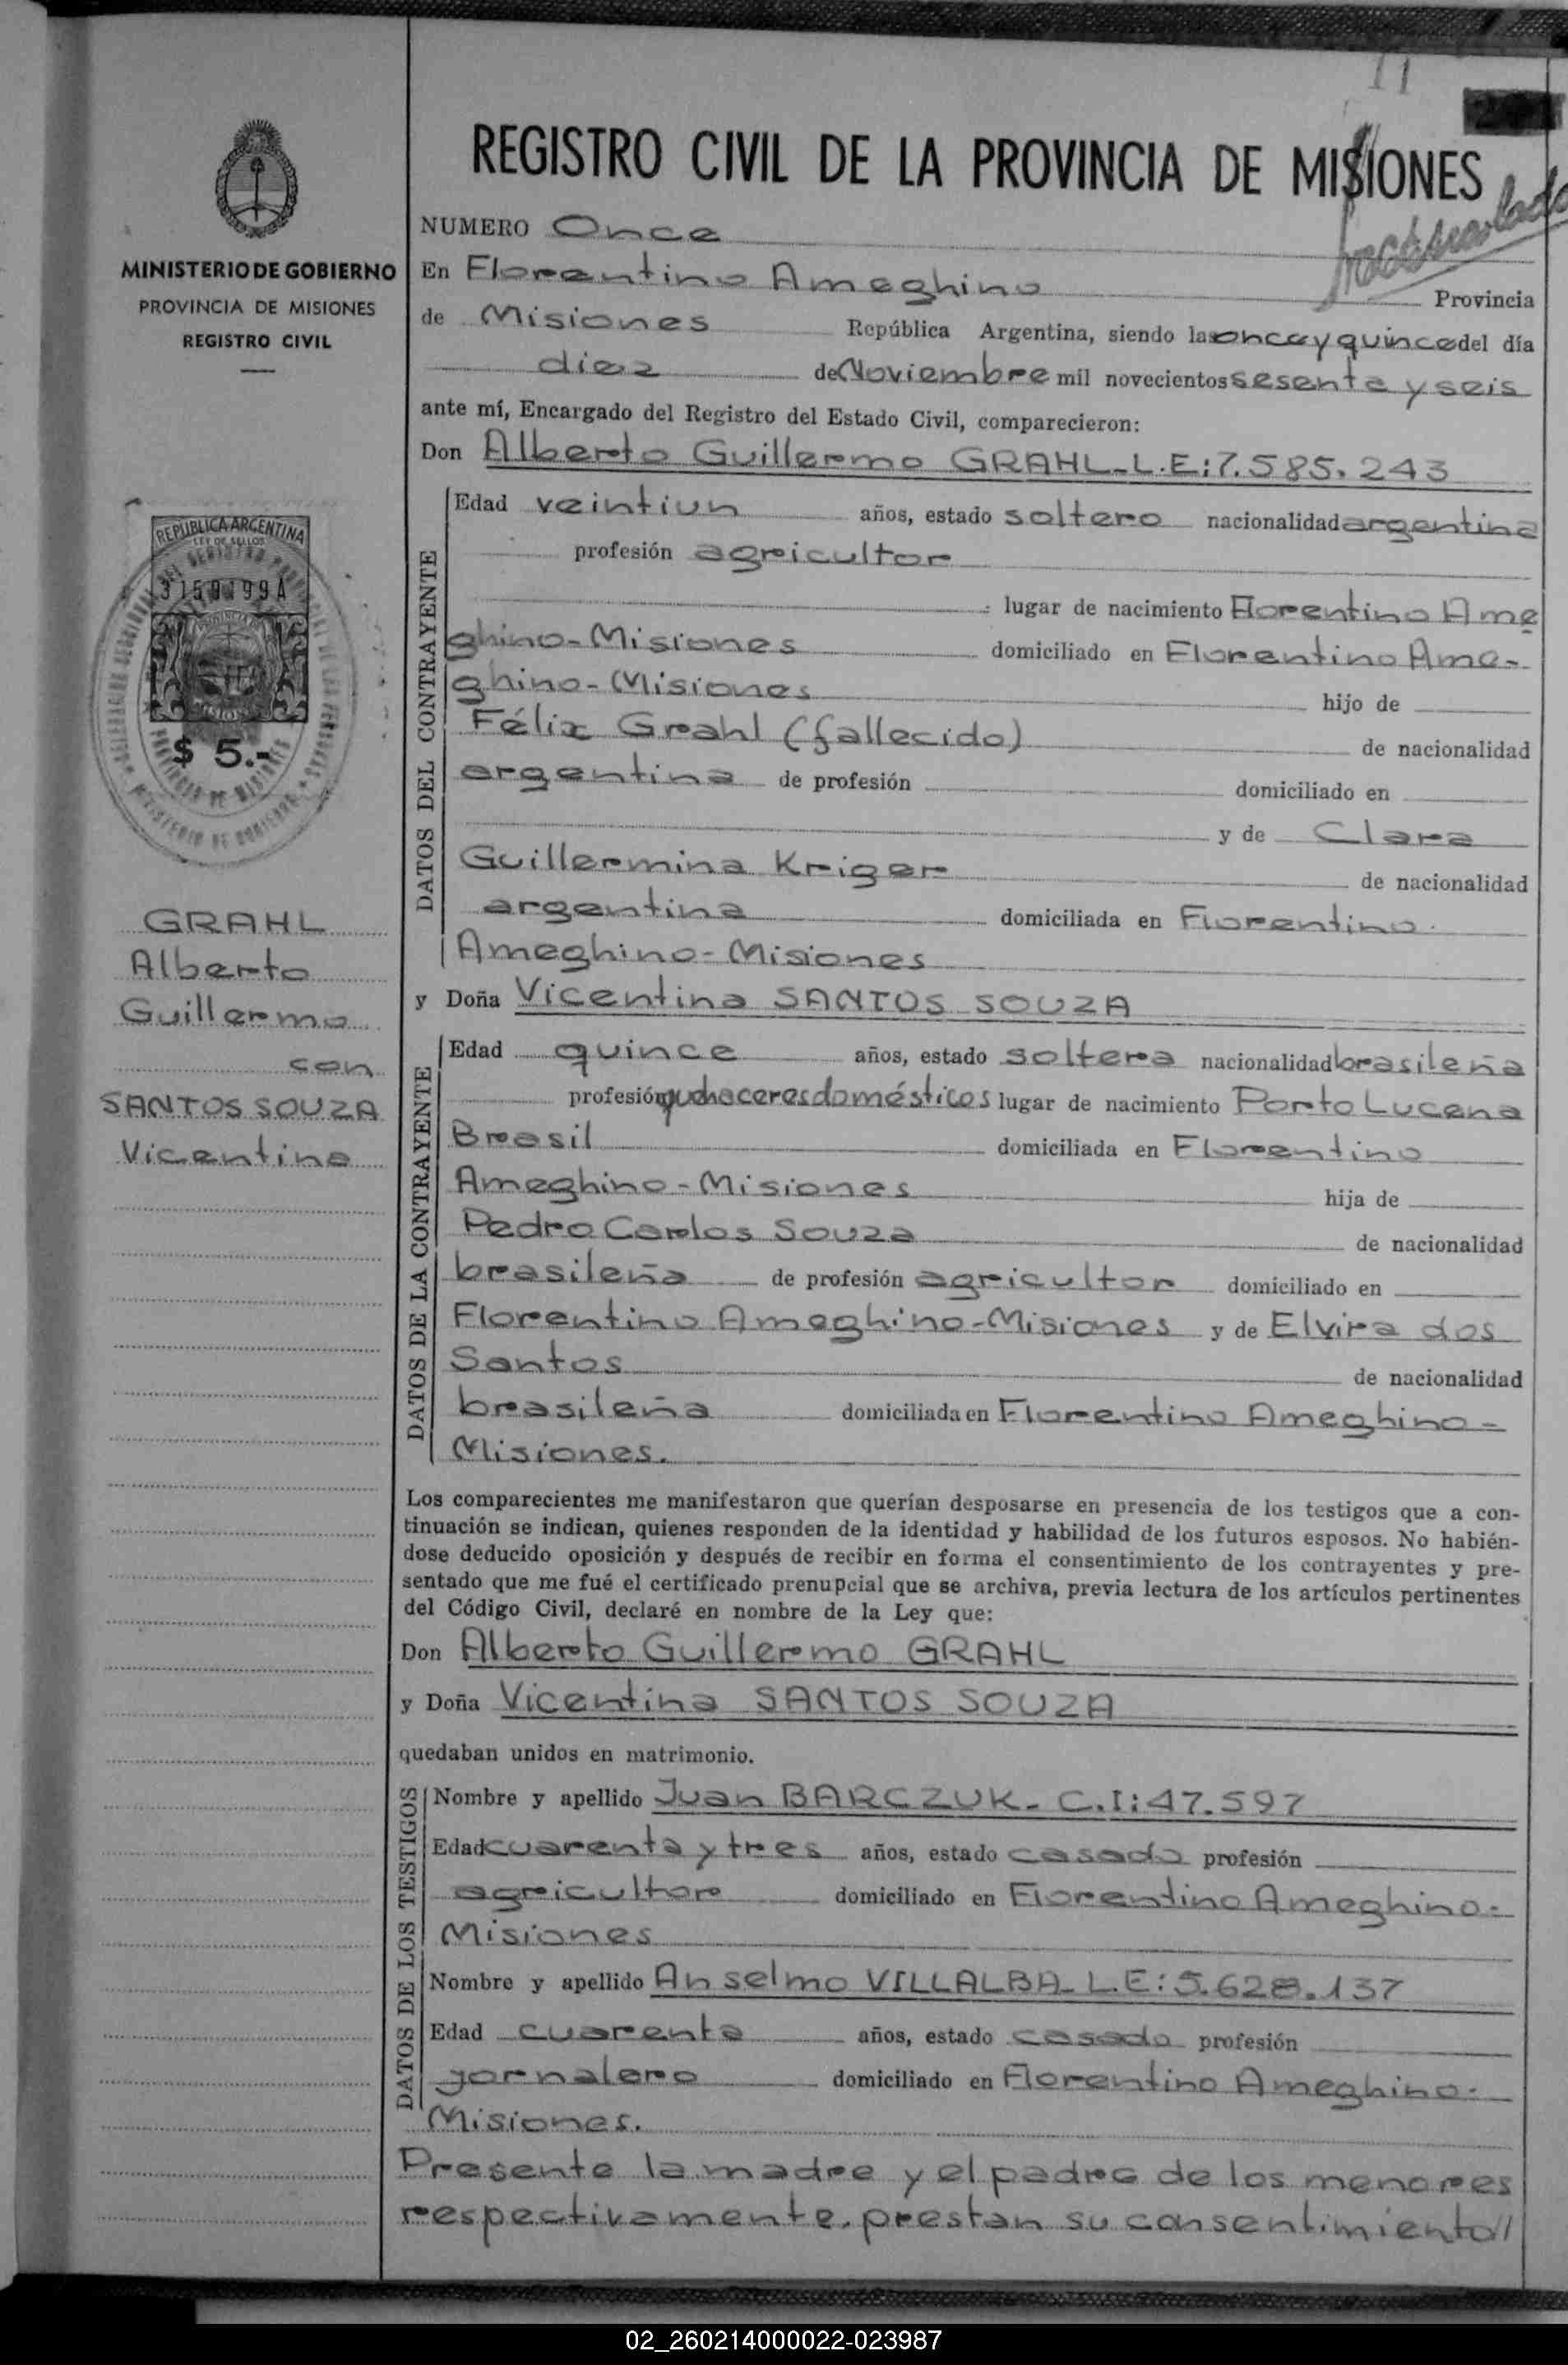 11
REGISTRO CIVIL DE LA PROVINCIA DE MISIONES
NUMERO Once
En Florentino Ameghino Provincia
de Misiones República Argentina, siendo las once y quince del día
diez de Noviembre mil novecientos sesenta y seis
ante mí, Encargado del Registro del Estado Civil, comparecieron:
Don Alberto Guillermo GRAHL-L.E:7.585.243
DATOS DEL CONTRAYENTE
Edad veintiun años, estado soltero nacionalidad argentina
profesión agricultor
lugar de nacimiento Florentino Ame
ghino-Misiones domiciliado en Florentino Ame-
ghino-Misiones hijo de
Félix Grahl (fallecido) de nacionalidad
argentina de profesión domiciliado en
y de Clara
Guillermina Kriger de nacionalidad
argentina domiciliada en Florentino
Ameghino-Misiones
y Doña Vicentina SANTOS SOUZA
DATOS DE LA CONTRAYENTE
Edad quince años, estado soltera nacionalidad brasileña
profesión quehaceres domésticos lugar de nacimiento Porto Lucena
Brasil domiciliada en Florentino
Ameghino-Misiones hija de
Pedro Carlos Souza de nacionalidad
brasileña de profesión agricultor domiciliado en
Florentino Ameghino-Misiones y de Elvira dos
Santos de nacionalidad
brasileña domiciliada en Florentino Ameghino-
Misiones.
Los comparecientes me manifestaron que querían desposarse en presencia de los testigos que a con-
tinuación se indican, quienes responden de la identidad y habilidad de los futuros esposos. No habién-
dose deducido oposición y después de recibir en forma el consentimiento de los contrayentes y pre-
sentado que me fué el certificado prenupcial que se archiva, previa lectura de los artículos pertinentes
del Código Civil, declaré en nombre de la Ley que:
Don Alberto Guillermo GRAHL
y Doña Vicentina SANTOS SOUZA
quedaban unidos en matrimonio.
DATOS DE LOS TESTIGOS
Nombre y apellido Juan BARCZUK- C.I:47.597
Edad cuarenta y tres años, estado casado profesión
agricultor domiciliado en Florentino Ameghino-
Misiones
Nombre y apellido Anselmo VILLALBA-L.E:5.628.137
Edad cuarenta años, estado casado profesión
jornalero domiciliado en Florentino Ameghino-
Misiones.
Presente la madre y el padre de los menores
respectivamente, prestan su consentimiento//
MINISTERIO DE GOBIERNO
PROVINCIA DE MISIONES
REGISTRO CIVIL
REPUBLICA ARGENTINA
LEY DE SELLOS
$ 5.-
GRAHL
Alberto
Guillermo
con
SANTOS SOUZA
Vicentina
02_260214000022-023987